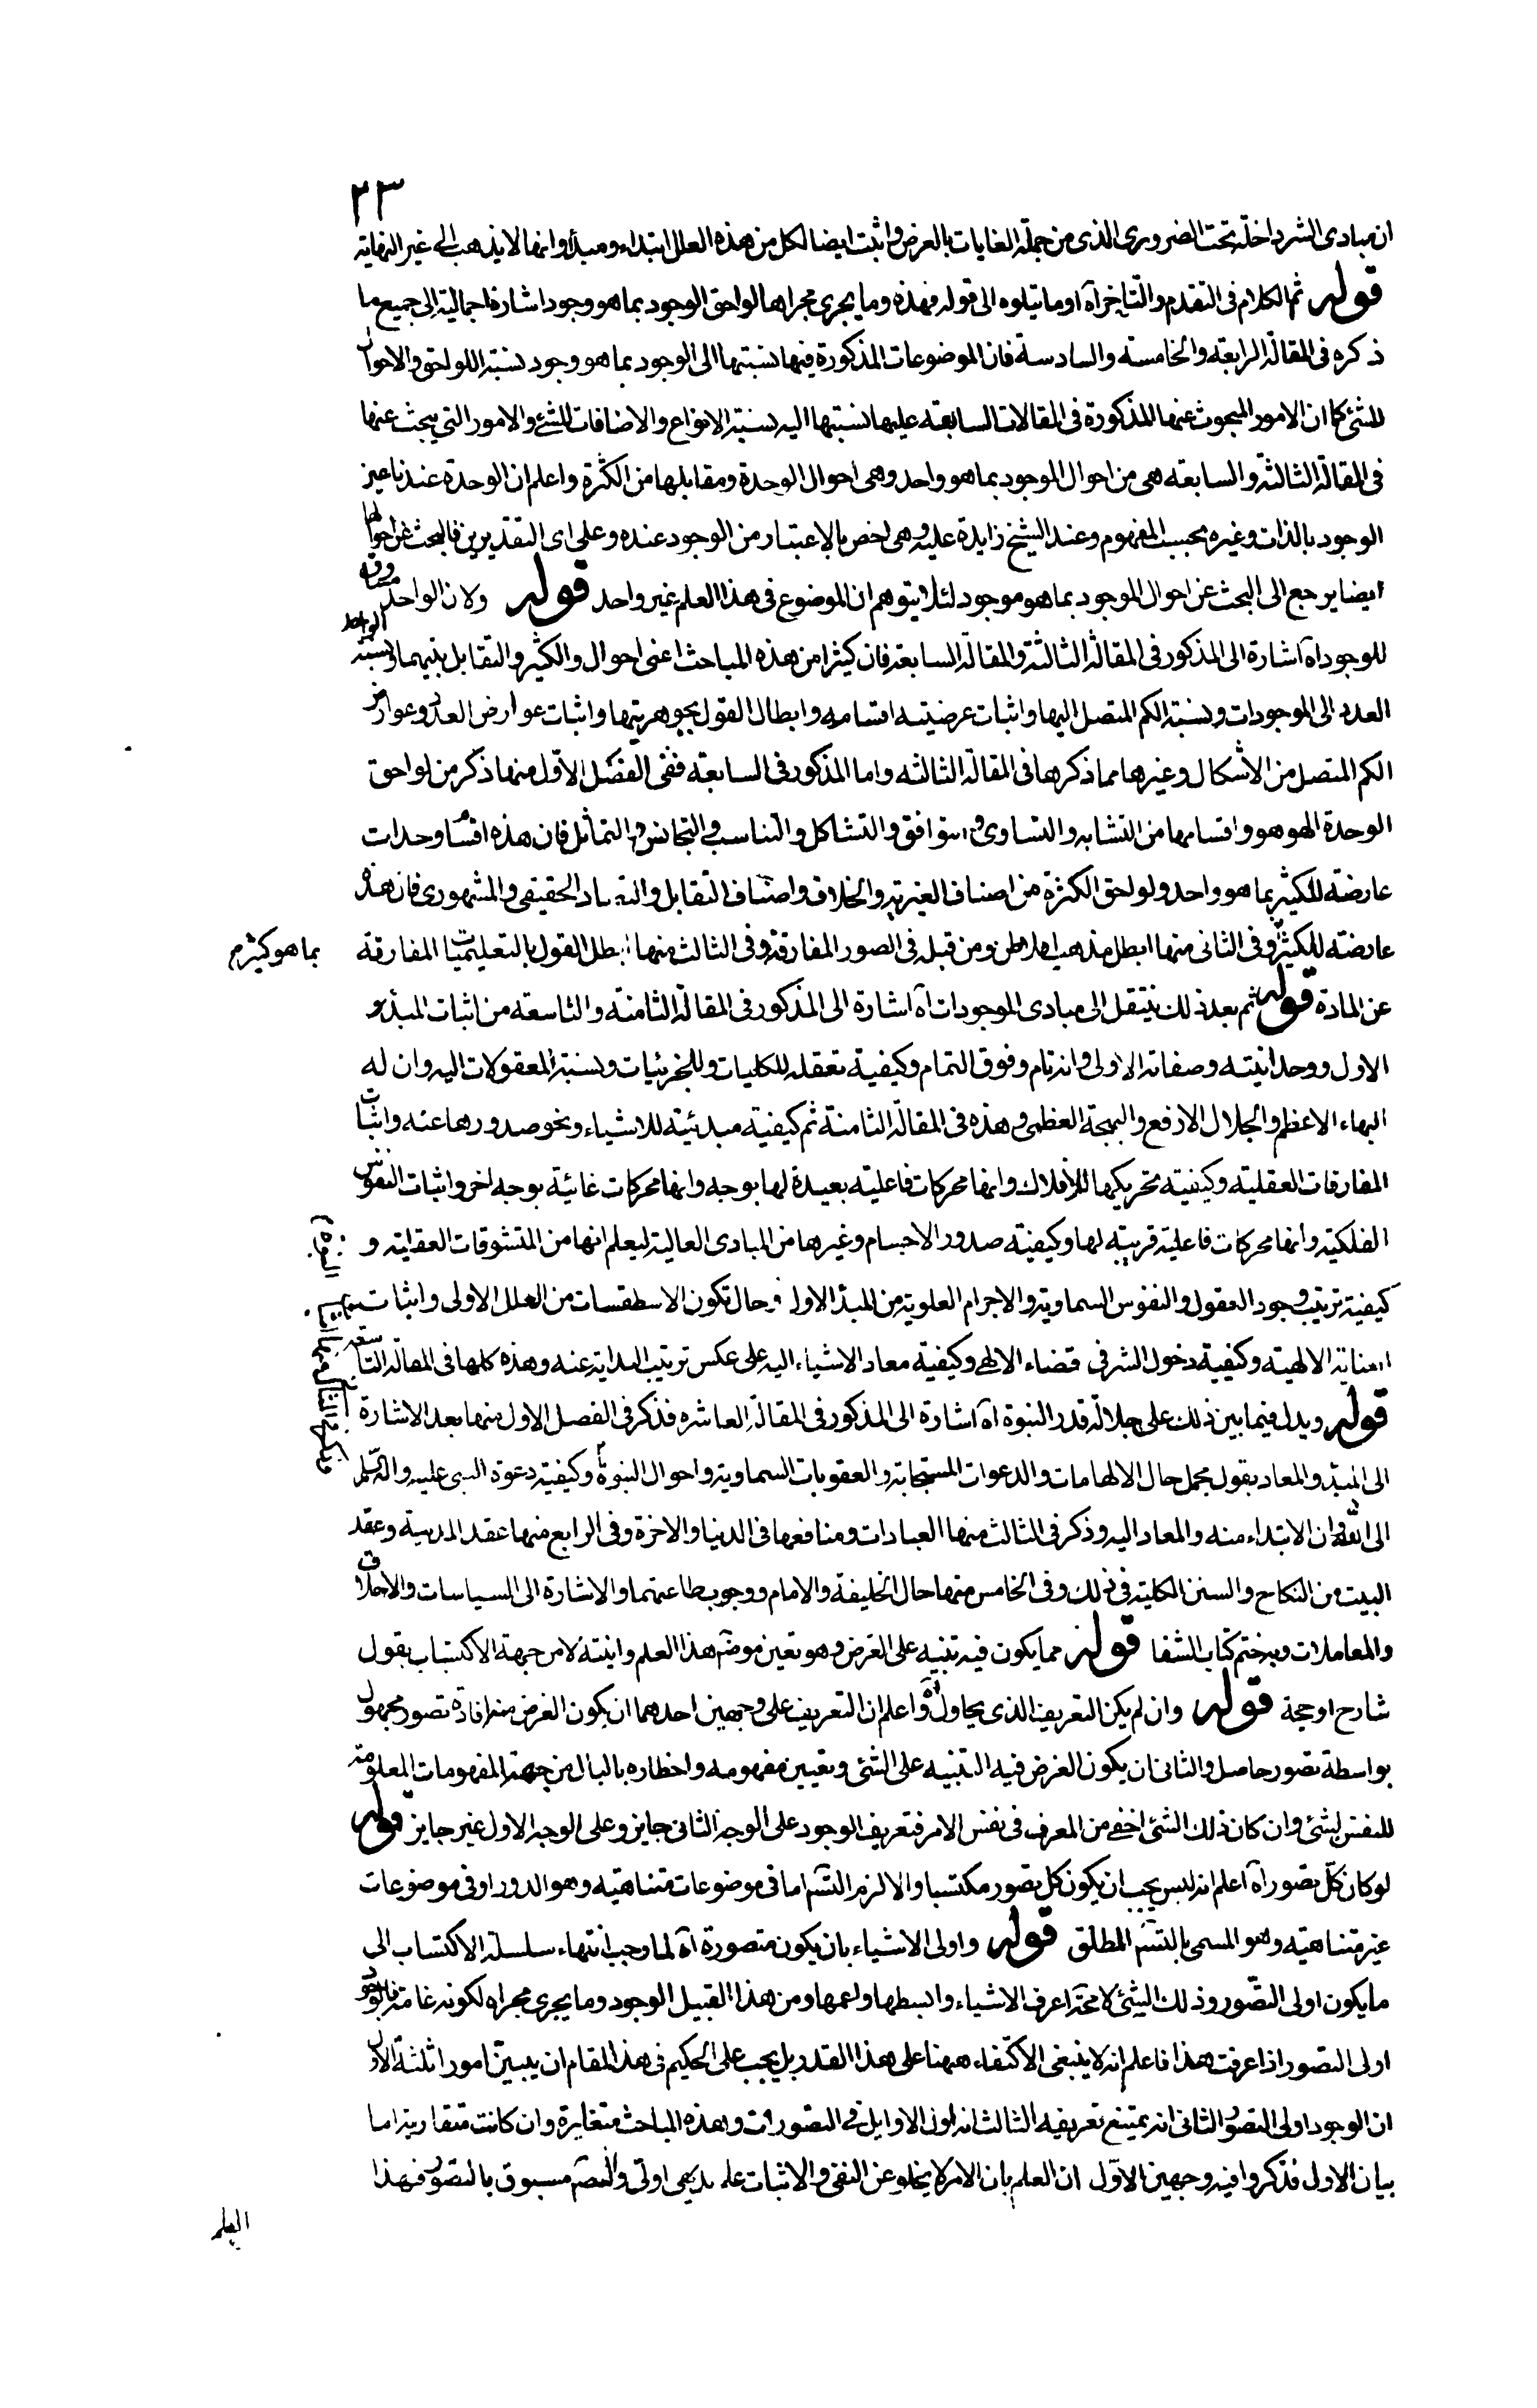 ٢٣
ان مبادى الشر داخلة تحت الضرورى الذى من جملة الغايات بالعرض واثبت ايضا لكل من هذه العلل ابتداء ومبدأ وانها لا يذهب الى غير النهاية
قوله ثم الكلام فى التقدم والتاخر آه او ما يتلوه الى قوله فهذه وما يجرى مجراها لواحق الوجود بما هو وجود اشارة اجمالية الى جميع ما
ذكره فى المقالة الرابعة والخامسة والسادسة فان الموضوعات المذكورة فيها نسبتها الى الوجود بما هو وجود نسبة اللواحق والاحوال
للشئ كما ان الامور المبحوث عنها المذكورة فى المقالات السابقة عليها نسبتها اليه نسبة الانواع والاضافات للشئ والامور التى يبحث عنها
فى المقالة الثالثة والسابعة هى من احوال الموجود بما هو واحد وهى احوال الوحدة ومقابلها من الكثرة واعلم ان الوحدة عندنا عين
الوجود بالذات وغيره بحسب المفهوم وعند الشيخ زايدة عليه وهى اخص بالاعتبار من الوجود عنده وعلى اى التقديرين فالبحث عن احوالها
ايضا يرجع الى البحث عن احوال الموجود بما هو موجود لئلا يتوهم ان الموضوع فى هذا العلم غير واحد قوله ولان الواحد مساوق
للوجود آه اشارة الى المذكور فى المقالة الثالثة والمقالة السابعة فان كثيرا من هذه المباحث اعنى احوال الواحد والكثير والتقابل بينهما ونسبة
العدد الى الموجودات ونسبة الكم المتصل اليها واثبات عرضيته اقسامه وابطال القول بجوهريتها واثبات عوارض العدد وعوارض
الكم المتصل من الاشكال وغيرها مما ذكرها فى المقالة الثالثة واما المذكور فى السابعة ففى الفصل الاول منها ذكر من لواحق
الوحدة الهوهو واقسامها من التشابه والتساوى والتوافق والتشاكل والتناسب والتجانس والتماثل فان هذه اقسام وحدات
عارضة للكثير بما هو واحد ولواحق الكثرة من اصناف الغيرية والخلاف واصناف التقابل والتضاد الحقيقى والمشهورى فان هذه
عارضة للكثير وفى الثانى منها ابطل مذهب افلاطن ومن قبله فى الصور المفارقة وفى الثالث منها ابطل القول بالتعليميات المفارقة
بما هو كثير م
عن المادة قوله ثم بعد ذلك ننتقل الى مبادى الموجودات آه اشارة الى المذكور فى المقالة الثامنة والتاسعة من اثبات المبدء
الاول ووحدانيته وصفاته الاولى وانه تام وفوق التمام وكيفية تعقله للكليات وللجزئيات ونسبة المعقولات اليه وان له
البهاء الاعظم والجلال الارفع والبهجة العظمى وهذه فى المقالة الثامنة ثم كيفية مبدئيته للاشياء ونحو صدورها عنه واثبات
المفارقات العقلية وكيفية تحريكها للافلاك وانها محركات فاعلية بعيدة لها بوجه وانها محركات غائية بوجه اخر واثبات النفوس
الفلكية وانها محركات فاعلية قريبة لها وكيفية صدور الاجسام وغيرها من المبادى العالية ليعلم انها من المتشوقات العقلية و
كيفية ترتيب وجود العقول والنفوس السماوية والاجرام العلوية من المبدء الاول وحال تكون الاسطقسات من العلل الاولى واثبات
العناية الالهية وكيفية دخول الشر فى قضاء الالهى وكيفية معاد الاشياء اليه على عكس ترتيب البداية عنه وهذه كلها فى المقالة التاسعة
قوله ويدل فيما بين ذلك على جلالة قدر النبوة آه اشارة الى المذكور فى المقالة العاشرة فذكر فى الفصل الاول منها بعد الاشارة
الى المبدء والمعاد بقول مجمل حال الالهامات والدعوات المستجابة والعقوبات السماوية واحوال النبوة وكيفية دعوة النبى عليه واله السلم
الى الله وان الابتداء منه والمعاد اليه وذكر فى الثالث منها العبادات ومنافعها فى الدنيا والاخرة وفى الرابع منها عقد المدينة وعقد
البيت من النكاح والسنن الكلية فى ذلك وفى الخامس منها حال الخليفة والامام ووجوب طاعتهما والاشارة الى السياسات والاخلاق
والمعاملات وبه ختم كتاب الشفا قوله مما يكون فيه تنبيه على الغرض وهو تعين موضع هذا العلم وانيته لا من جهة الاكتساب بقول
شارح او حجة قوله وان لم يكن التعريف الذى يحاول آه واعلم ان التعريف على وجهين احدهما ان يكون الغرض منه افادة تصور مجهول
بواسطة تصور حاصل والثانى ان يكون الغرض فيه التنبيه على الشئ وتعيين مفهومه واخطاره بالبال من جهة المفهومات المعلومة
للنفس لشئ وان كان ذلك الشئ اخفى من المعرف فى نفس الامر فتعريف الوجود على الوجه الثانى جايز وعلى الوجه الاول غير جايز قوله
لو كان كل تصور آه اعلم انه ليس يجب ان يكون كل تصور مكتسبا والا لزم التسلسل اما فى موضوعات متناهية وهو الدور او فى موضوعات
غير متناهية وهو المسمى بالتسلسل المطلق قوله واولى الاشياء بان يكون متصورة آه لما وجب انتهاء سلسلة الاكتساب الى
ما يكون اولى التصور وذلك الشئ لا محة اعرف الاشياء وابسطها واعمها ومن هذا القبيل الوجود وما يجرى مجراه لكونه عامة فالوجود
اولى التصور اذا عرفت هذا فاعلم انه لا ينبغى الاكتفاء ههنا على هذا القدر بل يجب على الحكيم فى هذا المقام ان يبين امورا ثلثة الاول
ان الوجود اولى التصور الثانى انه يمتنع تعريفه الثالث انه اول الاوايل فى التصورات وهذه المباحث متغايرة وان كانت متقاربة اما
بيان الاول فذكروا فيه وجهين الاول ان العلم بان الامر لا يخلو عن النفى والاثبات علم بديهى اولى والتصديق مسبوق بالتصور فهذا
العلم